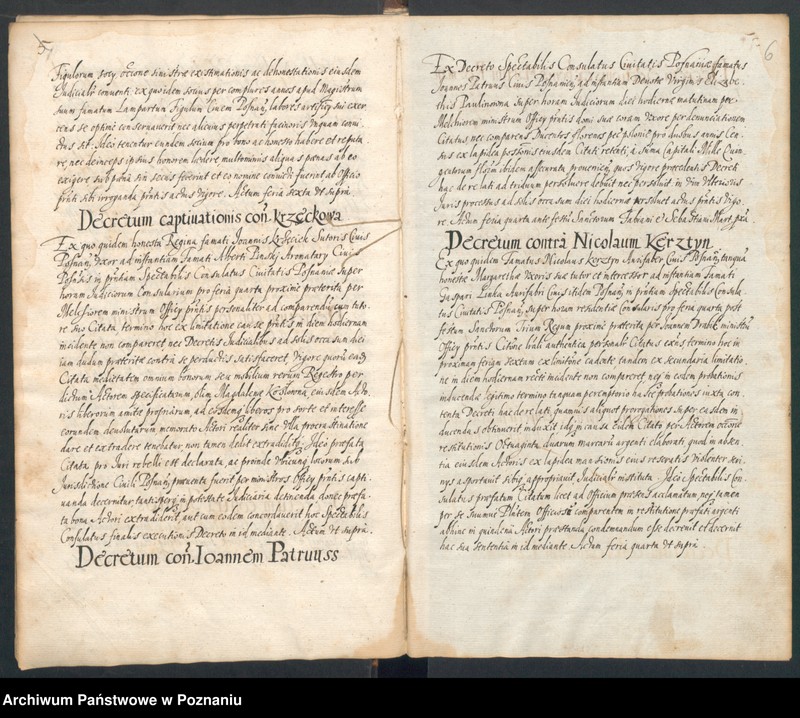 5
Figulorum socy occone sinistræ existimationis ac dehonestationis eiusdem
Judicialr convenit: ex quo idem socius per complures annos apud Magistrum
suum famatum Lampartum Figulum Civem Posnan: labores artificy sui exer
cens se optime conservaverit nec alicuius perpetrati facinoris unquam convi
ctus sit. Ideo tenentur eundem socium pro bono ac honesto habere et reputa
re, nec deinceps ipsius honorem lædere multominus aliquas pænas ab eo
exigere sub pæna
Decretum captivationis con krzeckowa
Ex quo quidem honesta Regina famati Joannis Krzeciek Sutoris Civis
Posnan: Uxor ad instantiam famati Alberti Aromatary Civis
Posnan: in pntiam Spectabilis Consulatus Civitatis Posnaniæ super
horam Judiciorum Consularium pro feria quarta proxime præterita per
Melchiorem ministrum Officy pntis personaliter ad comparendum cum tuto
re suo Citata termino hoc ex limitatione causæ pntis in diem hodiernam
incidente non comparet nec Decretis Judicialibus ad solis occasum diei
iam dudum præteritæ contra se perductis satisfaceret, vigore quorum eadem
Citata medietatem omnium bonorum seu mobilium rerum Registro per
dictum Actorem specificatarum, olim Magdalenæ eiusdem Acto
ris liberorum amitæ propriarum, ad eosdem liberos pro sorte et interesse
eorundem devolutarum memorato Actori realiter sine ulla procrastinatione
dare et extradere tenebatur, non tamen dedit extraditque: Ideo præfata
Citata pro Juri rebelli est declarata, ac proinde ubicunque locorum sub
Jurisditione Civili Posnan: præventa fuerit per ministros Officy pntis capti
vanda decernitur, tantisper in potestate Judiciaria detinenda donec præfa
ta bona Actori extradiderit, aut cum eodem concordaverit hoc Spectabilis
Consulatus finalis executionis Decreto in id mediante. Actum ut supra.
Decretum con. Ioannem Patruuss
6
Ex Decreto Spectabilis Consulatus Civitatis Posnaniæ famatus
Joannes Patruus Civis Posnanien: ad instantiam Devotæ Virginis Elizabe-
this Paulinowna super horam Judiciorum diei hodiernæ matutinam per
Melchiorem ministrum Officy pntis domi suæ coram uxore per denunciationem
Citatus, nec comparens Ducentos florenos pec: polonic: pro duobus annis Cen-
sus ex lapidea possessionis eiusdem Citati retenti, a Suma Capitali Mille Quin
gentorum floren: ibidem assecurata provenien: quos vigore præcedentis Decreti
hac de re lati ad triduum persolvere debuit nec persolvit in vim ulterioris
Juris processus ad solis occasum diei hodiernæ persolvet actus pntis vigo
re. Actum feria quarta ante festum Sanctorum Fabiani et Sebastiani Mart:
Decretum contra Nicolaum Kersztyn
Ex quo quidem famatus Nicolaus Kersztyn Aurifaber Civis Posnan: tanquam
honestæ Margarethæ Uxoris suæ tutor et intercessor ad instantiam famati
Caspari Linka Aurifabri Civis itidem Posnan: in pntiam Spectabilis Consula-
tus Civitatis Posnan: super horam residentiæ Consularis pro feria quarta post
festum Sanctorum Trium Regum proxime præterita per Joannem Drabik ministrum
Officy pntis Citone hali authentica personalr Citatus existens termino hoc in
proximam feriam sextam ex limitone cadente tandem ex secundaria limitatio-
ne in diem hodiernam recte incidente non comparet, neque in eodem probationis
inducendæ legitimo termino tanquam peremptorio hasce probationes iuxta con-
tenta Decreti hac de re lati quamvis aliquot prorogationes super eisdem in
ducendis obtinuerit induxit, idque in causa eidem Citato per Actorem occone
restitutionis Octuaginta duarum marcarum argenti elaborati, quod in absen-
tia eiusdem Actoris ex lapidea mansionis eius reseratis violenter seri-
nys asportavit sibique appropriavit Judicialr instituta. Ideo Spectabilis Con-
sulatus præfatum Citatum licet ad Officium præsens acclamatum, neque tamen
per se suumve Plenipotentem Officiosum comparentem in restitutione præfati argenti
abhinc in quindena Actori præstanda condemnandum esse decrevit et decernit
hac sua sententia in id mediante. Actum feria quarta ut supra.
Archiwum Państwowe w Poznaniu